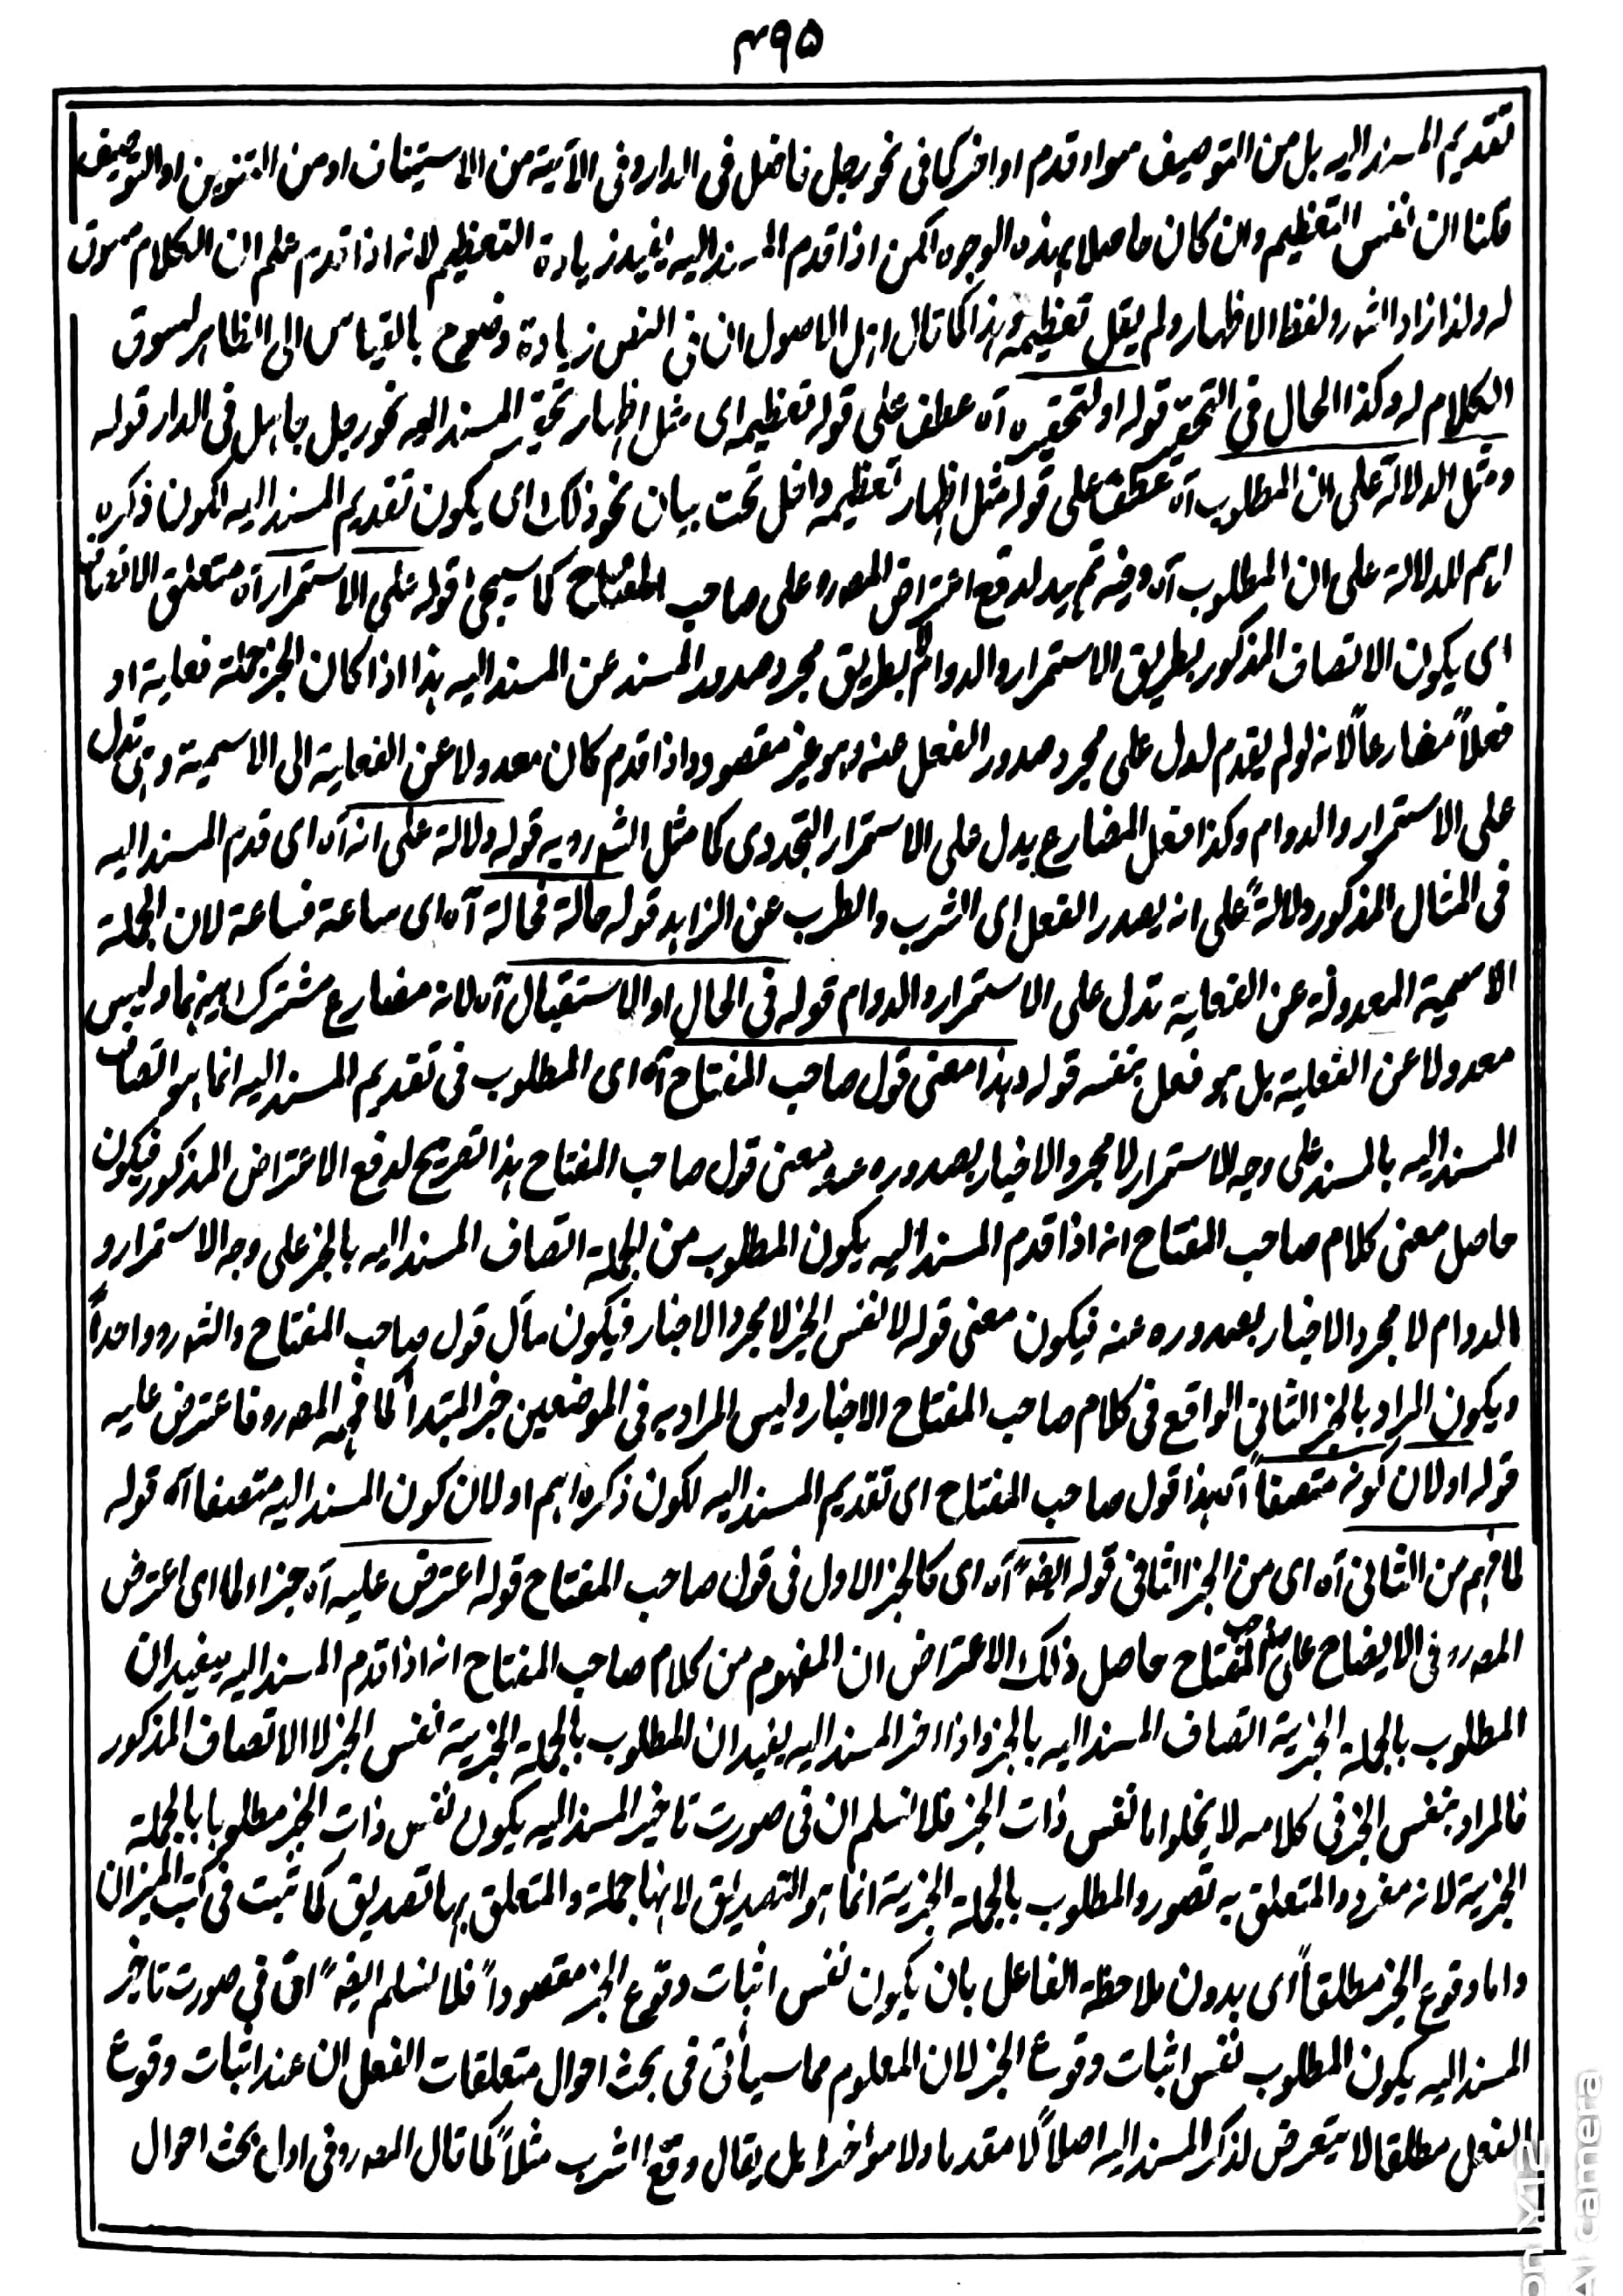 ۴۹۵
تقديم المسند اليه بل من التوصيف سواء قدم او اخر كما فى نحو رجل فاضل فى الدار وفى الآتية من الاستيناف او من التنوين او التوصيف
قلنا ان نفس التعظيم وان كان حاصلا بهذه الوجوه لكن اذا قدم المسند اليه يفيد زيادة التعظيم لانه اذا قدم علم ان الكلام مسوق
له ولذا زاد الشه رو لفظ الاظهار ولم يقل تعظيمه وهذا كما قال اهل الاصول ان فى النص زيادة وضوح بالقياس الى الظاهر لسوق
الكلام له وكذا الحال فى التحقير قوله او لتحقيره آه عطف على قوله تعظيمه اى مثل اظهار تحقير المسند اليه نحو رجل جاهل فى الدار قوله
ومثل الدلالة على ان المطلوب آه عطف على قوله مثل اظهار تعظيمه داخل تحت بيان نحو ذلك اى يكون تقديم المسند اليه لكون ذكره
اهم للدلالة على ان المطلوب آه وفيه تمهيد لدفع اعتراض المصه رو على صاحب المفتاح كما سيجئ قوله على الاستمرار آه متعلق الاتصاف
اى يكون الاتصاف المذكور بطريق الاستمرار والدوام لا بطريق مجرد صدور المسند عن المسند اليه هذا اذا كان الخبر جملة فعلية او
فعلاً مضارعاً لانه لو لم يقدم لدل على مجرد صدور الفعل عنه وهو غير مقصود واذا قدم كان معدولا عن الفعلية الى الاسمية وهى تدل
على الاستمرار والدوام وكذا فعل المضارع يدل على الاستمرار التجددى كما مثل الشه رو به قوله دلالة على انه آه اى قدم المسند اليه
فى المثال المذكور دلالةً على انه يصدر الفعل اى الشرب والطرب عن الزاهد قوله حالة فحالة آه اى ساعة فساعة لان الجملة
الاسمية المعدولة عن الفعلية تدل على الاستمرار والدوام قوله فى الحال او الاستقبال آه لانه مضارع مشترك بينهما وليس
معدولا عن الفعلية بل هو فعل بنفسه قوله وهذا معنى قول صاحب المفتاح آه اى المطلوب فى تقديم المسند اليه انما هو اتصاف
المسند اليه بالمسند على وجه الاستمرار لا مجرد الاخبار بصدوره عنه معنى قول صاحب المفتاح هذا تصريح لدفع الاعتراض المذكور فيكون
حاصل معنى كلام صاحب المفتاح انه اذا قدم المسند اليه يكون المطلوب من الجملة اتصاف المسند اليه بالخبر على وجه الاستمرار و
الدوام لا مجرد الاخبار بصدوره عنه فيكون معنى قوله لا نفس الخبر لا مجرد الاخبار ويكون مآل قول صاحب المفتاح والشه رو واحداً
ويكون المراد بالخبر الثانى الواقع فى كلام صاحب المفتاح الاخبار وليس المراد به فى الموضعين خبر المبتدأ كما فهمه المصه رو فاعترض عليه
قوله او لان كونه متصفاً آه هذا قول صاحب المفتاح اى تقديم المسند اليه لكون ذكره اهم او لان كون المسند اليه متصفا آه قوله
لما فهم من الثانى آه اى من الخبر الثانى قوله ايضاً آه اى كالخبر الاول فى قول صاحب المفتاح قوله اعترض عليه آه جزاء لما اى اعترض
المصه رو فى الايضاح على صاحب المفتاح حاصل ذلك الاعتراض ان المفهوم من كلام صاحب المفتاح انه اذا قدم المسند اليه يفيد ان
المطلوب بالجملة الخبرية اتصاف المسند اليه بالخبر واذا اخر المسند اليه يفيد ان المطلوب بالجملة الخبرية نفس الخبر لا الاتصاف المذكور
فالمراد بنفس الخبر فى كلامه لا يخلوا ما نفس ذات الخبر فلا نسلم ان فى صورت تاخير المسند اليه يكون نفس ذات الخبر مطلوبا بالجملة
الخبرية لانه مفرد والمتعلق به تصور والمطلوب بالجملة الخبرية انما هو التصديق لانها جملة والمتعلق بها تصديق كما ثبت فى كتب الميزان
واما وقوع الخبر مطلقاً اى بدون ملاحظة الفاعل بان يكون نفس اثبات وقوع الخبر مقصوداً فلا نسلم ايضاً ان فى صورت تاخير
المسند اليه يكون المطلوب نفس اثبات وقوع الخبر لان المعلوم مما سيأتى فى بحث احوال متعلقات الفعل ان عند اثبات وقوع
الفعل مطلقا لا يتعرض لذكر المسند اليه اصلاً لا مقدما ولا مؤخرا بل يقال وقع الشرب مثلاً كما قال المصه رو فى اول بحث احوال
on Y12
AI camera